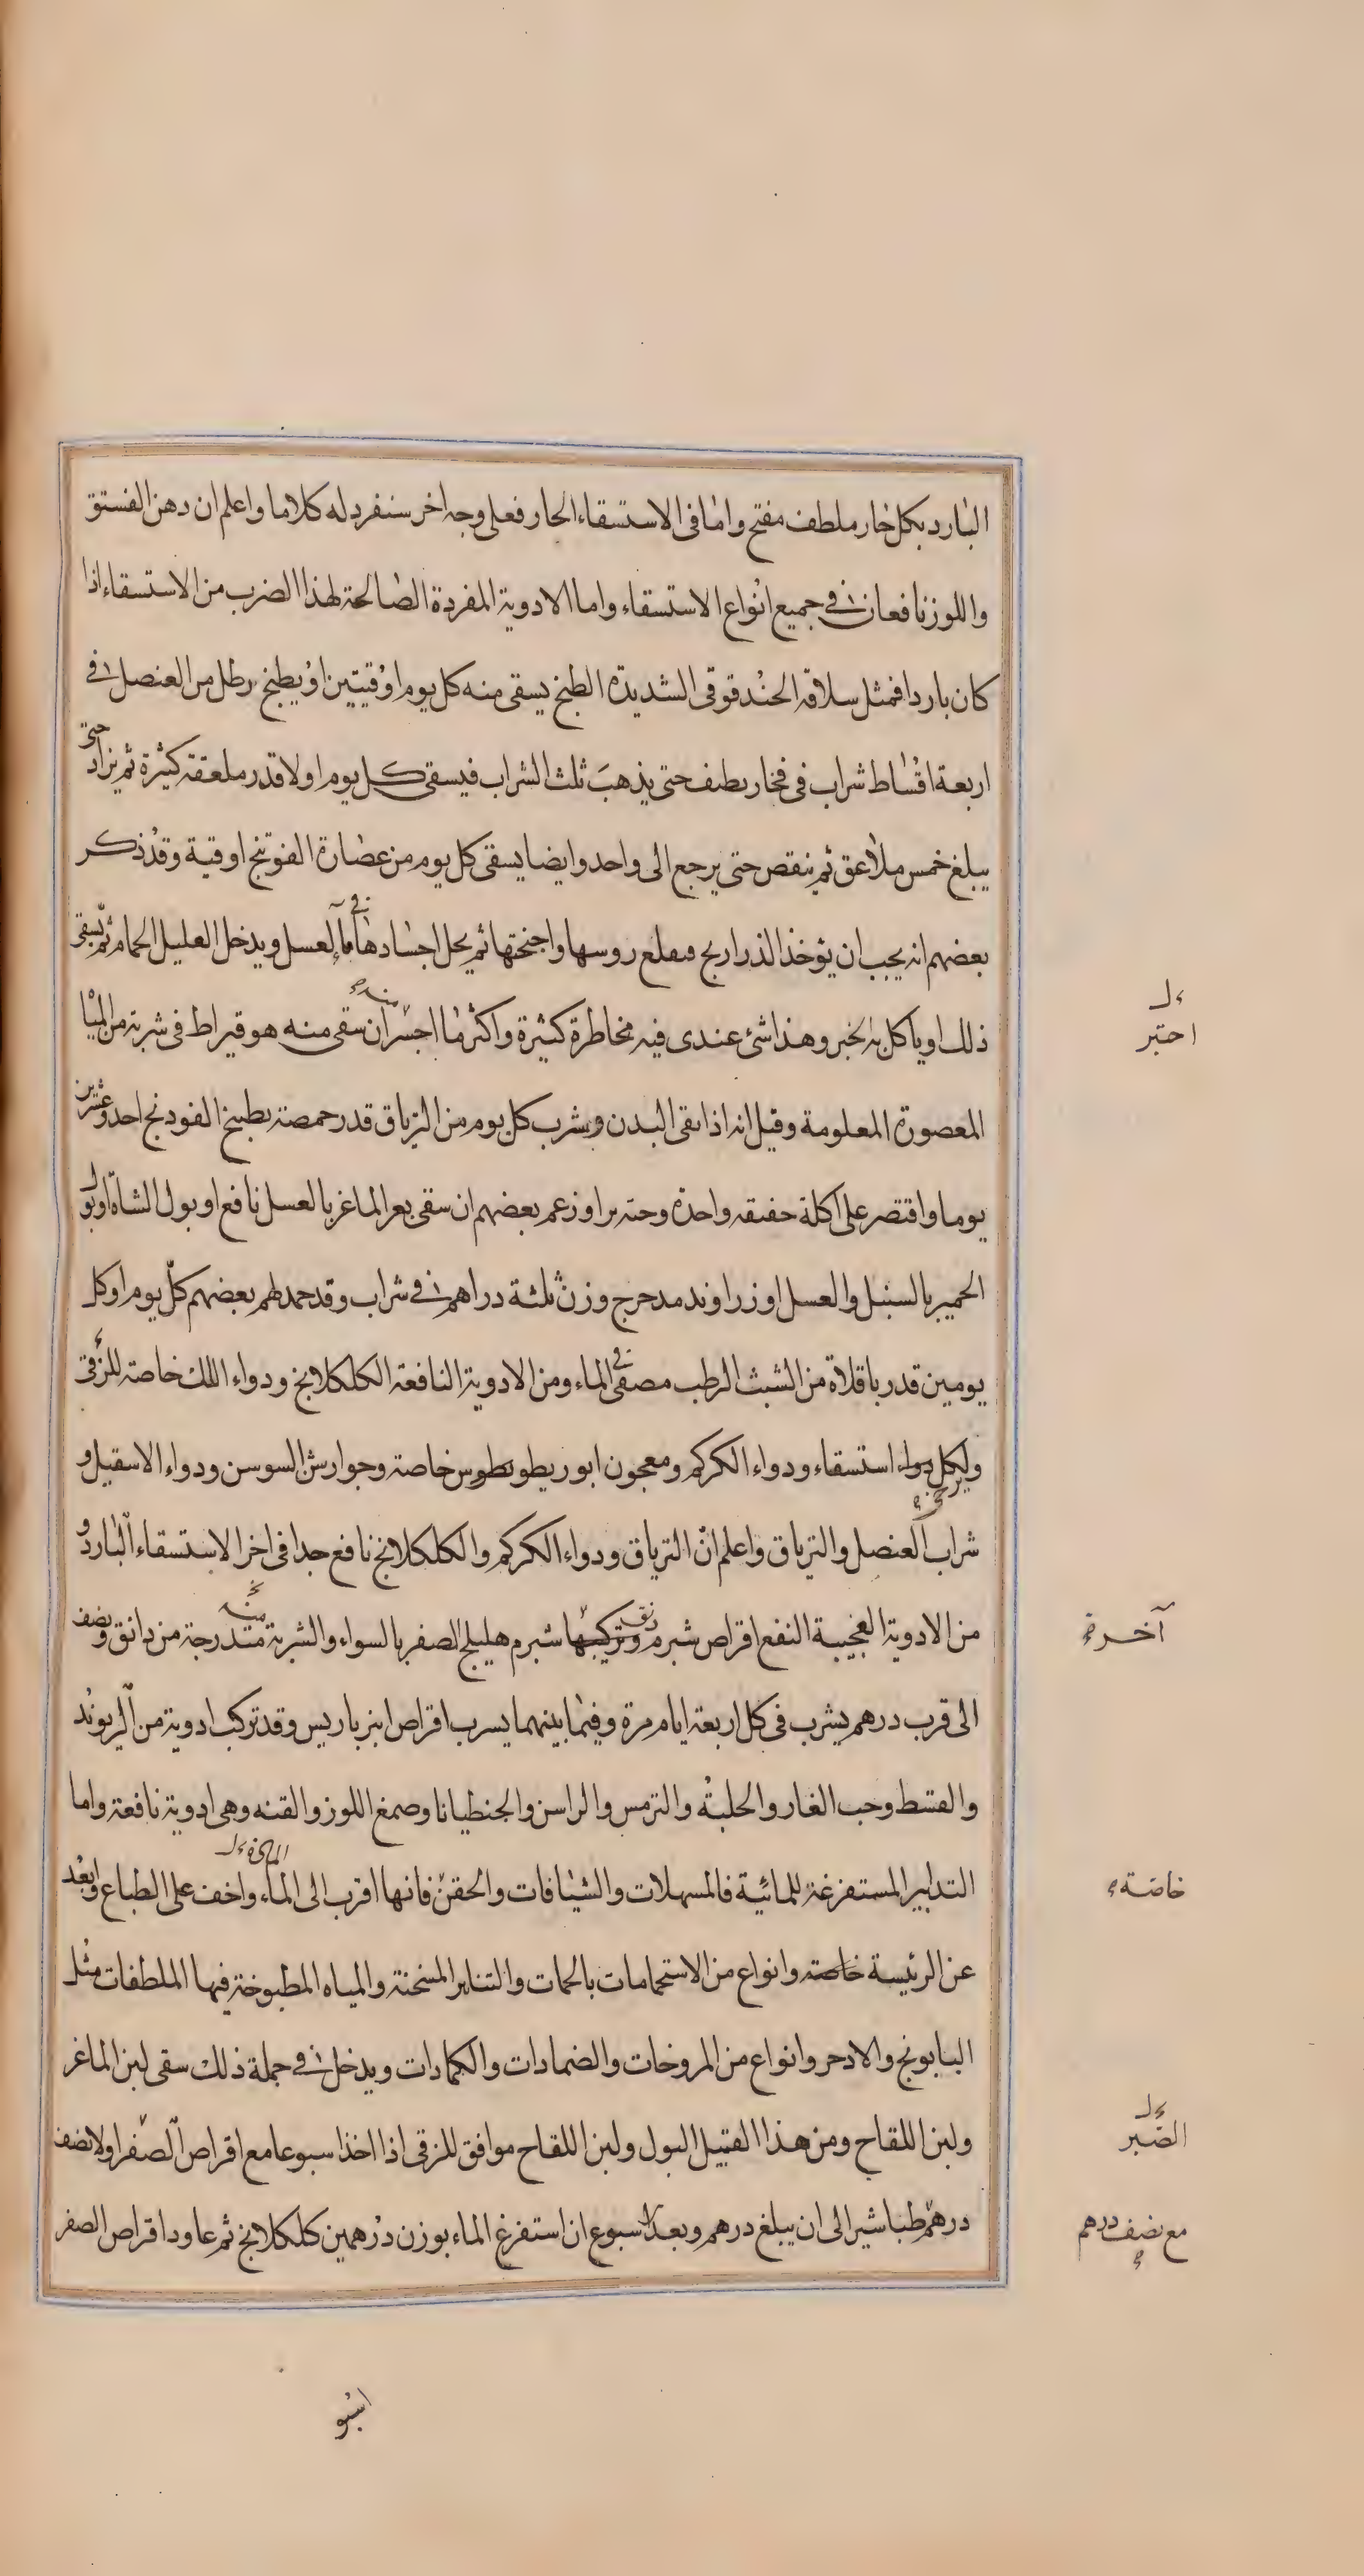 البارد بكل حار ملطف مفتح واما فى الاستسقاء الحار فعلى وجه اخر سنفرد له كلاما واعلم ان دهن الفستق
واللوز نافعان فى جميع انواع الاستسقاء واما الادوية المفردة الصالحة لهذا الضرب من الاستسقاء اذا
كان باردا فمثل سلاقة الحندقوقى الشديدة الطبخ يسقى منه كل يوم اوقيتين او يطبخ رطل من العنصل فى
اربعة اقساط شراب فى فخار نظيف حتى يذهب ثلث الشراب فيسقى كل يوم اولا قدر ملعقة كثيرة ثم يزاد حتى
يبلغ خمس ملاعق ثم ينقص حتى يرجع الى واحد وايضا يسقى كل يوم من عصارة الفوتنج اوقية وقد ذكر
بعضهم انه يجب ان يؤخذ الذراريح فىقلع روسها واجنحتها ثم يحل اجسادها فى ماء العسل ويدخل العليل الحمام ثم يسقى
ذلك او ياكل به الخبز وهذا شئ عندى فيه مخاطرة كثيرة واكثر ما اجسر ان سقى منه هو قيراط فى شربة من المياه
المعصورة المعلومة وقيل انه اذا نقى البدن وشرب كل يوم من الترياق قدر حمصة بطبيخ الفودنج احد وعشرين
يوما واقتصر على اكلة خفيفه واحدة وحتىرا وزعم بعضهم ان سقى بعر الماعز بالعسل نافع او بول الشاة او بول
الحمير بالسنبل والعسل او زراوند مدحرج وزن ثلثة دراهم فى شراب وقد حمد لهم بعضهم كل يوم او كل
يومين قدر باقلاة من الشبث الرطب مصفى فى الماء ومن الادوية النافعة الكلكلانج ودواء اللك خاصة للزقى
ولكل دواء استسقاء ودواء الكركم ومعجون ابوريطوبطوس خاصة وجوارش السوسن ودواء الاسقيل و
شراب العنصل والترياق واعلم ان الترياق ودواء الكركم والكلكلانج نافع جدا فى اخر الاستسقاء البارد و
من الادوية العجيبة النفع اقراص شبرم وتركيبها شبرم هليلج اصفر بالسواء والشربة منه متدرجة من دانق ونصف
الى قرب درهم يشرب فى كل اربعة ايام مرة وفيما بينهما يسرب اقراص انبرباريس وقد تركب ادوية من الريوند
والقسط وحب الغار والحلبة والترمس والراسن والجنطيانا وصمغ اللوز والقنه وهى ادوية نافعة واما
التدابير المستفرغة للمائية فالمسهلات والشيافات والحقن فانها اقرب الى الماء واخف على الطباع وابعد
عن الرئيسة خاصة وانواع من الاستحمامات بالحمات والتنانير المسخنة والمياه المطبوخة فيها الملطفات مثل
البابونج والادخر وانواع من المروخات والضمادات والكمادات ويدخل فى جملة ذلك سقى لبن الماعز
ولبن اللقاح ومن هذا القبيل البول ولبن اللقاح موافق للزقى اذا اخذ اسبوعا مع اقراص الصفر اولا نصف
درهم طباشير الى ان يبلغ درهم وبعد اسبوع ان استفرغ الماء بوزن درهمين كلكلانج ثم عاود اقراص الصفر
آخره
خاصة
الصبر
مع نصف درهم
اسبو